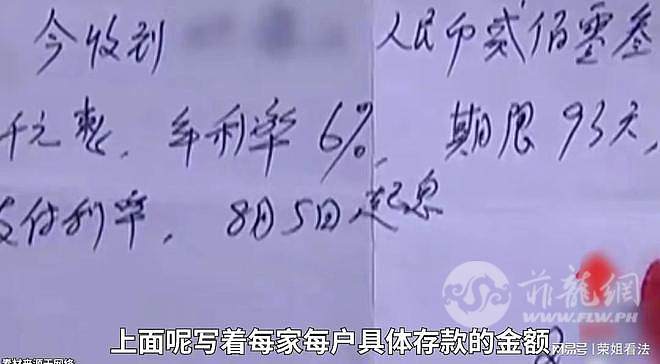 今收到 人民币贰佰零叁
千元整,年利率6%,期限93天,
支付利率,8月5日起息
菲龍網
WWW.FLW.PH
上面呢写着每家每户具体存款的金额
素材来源于网络
网易号 | 荣姐看法